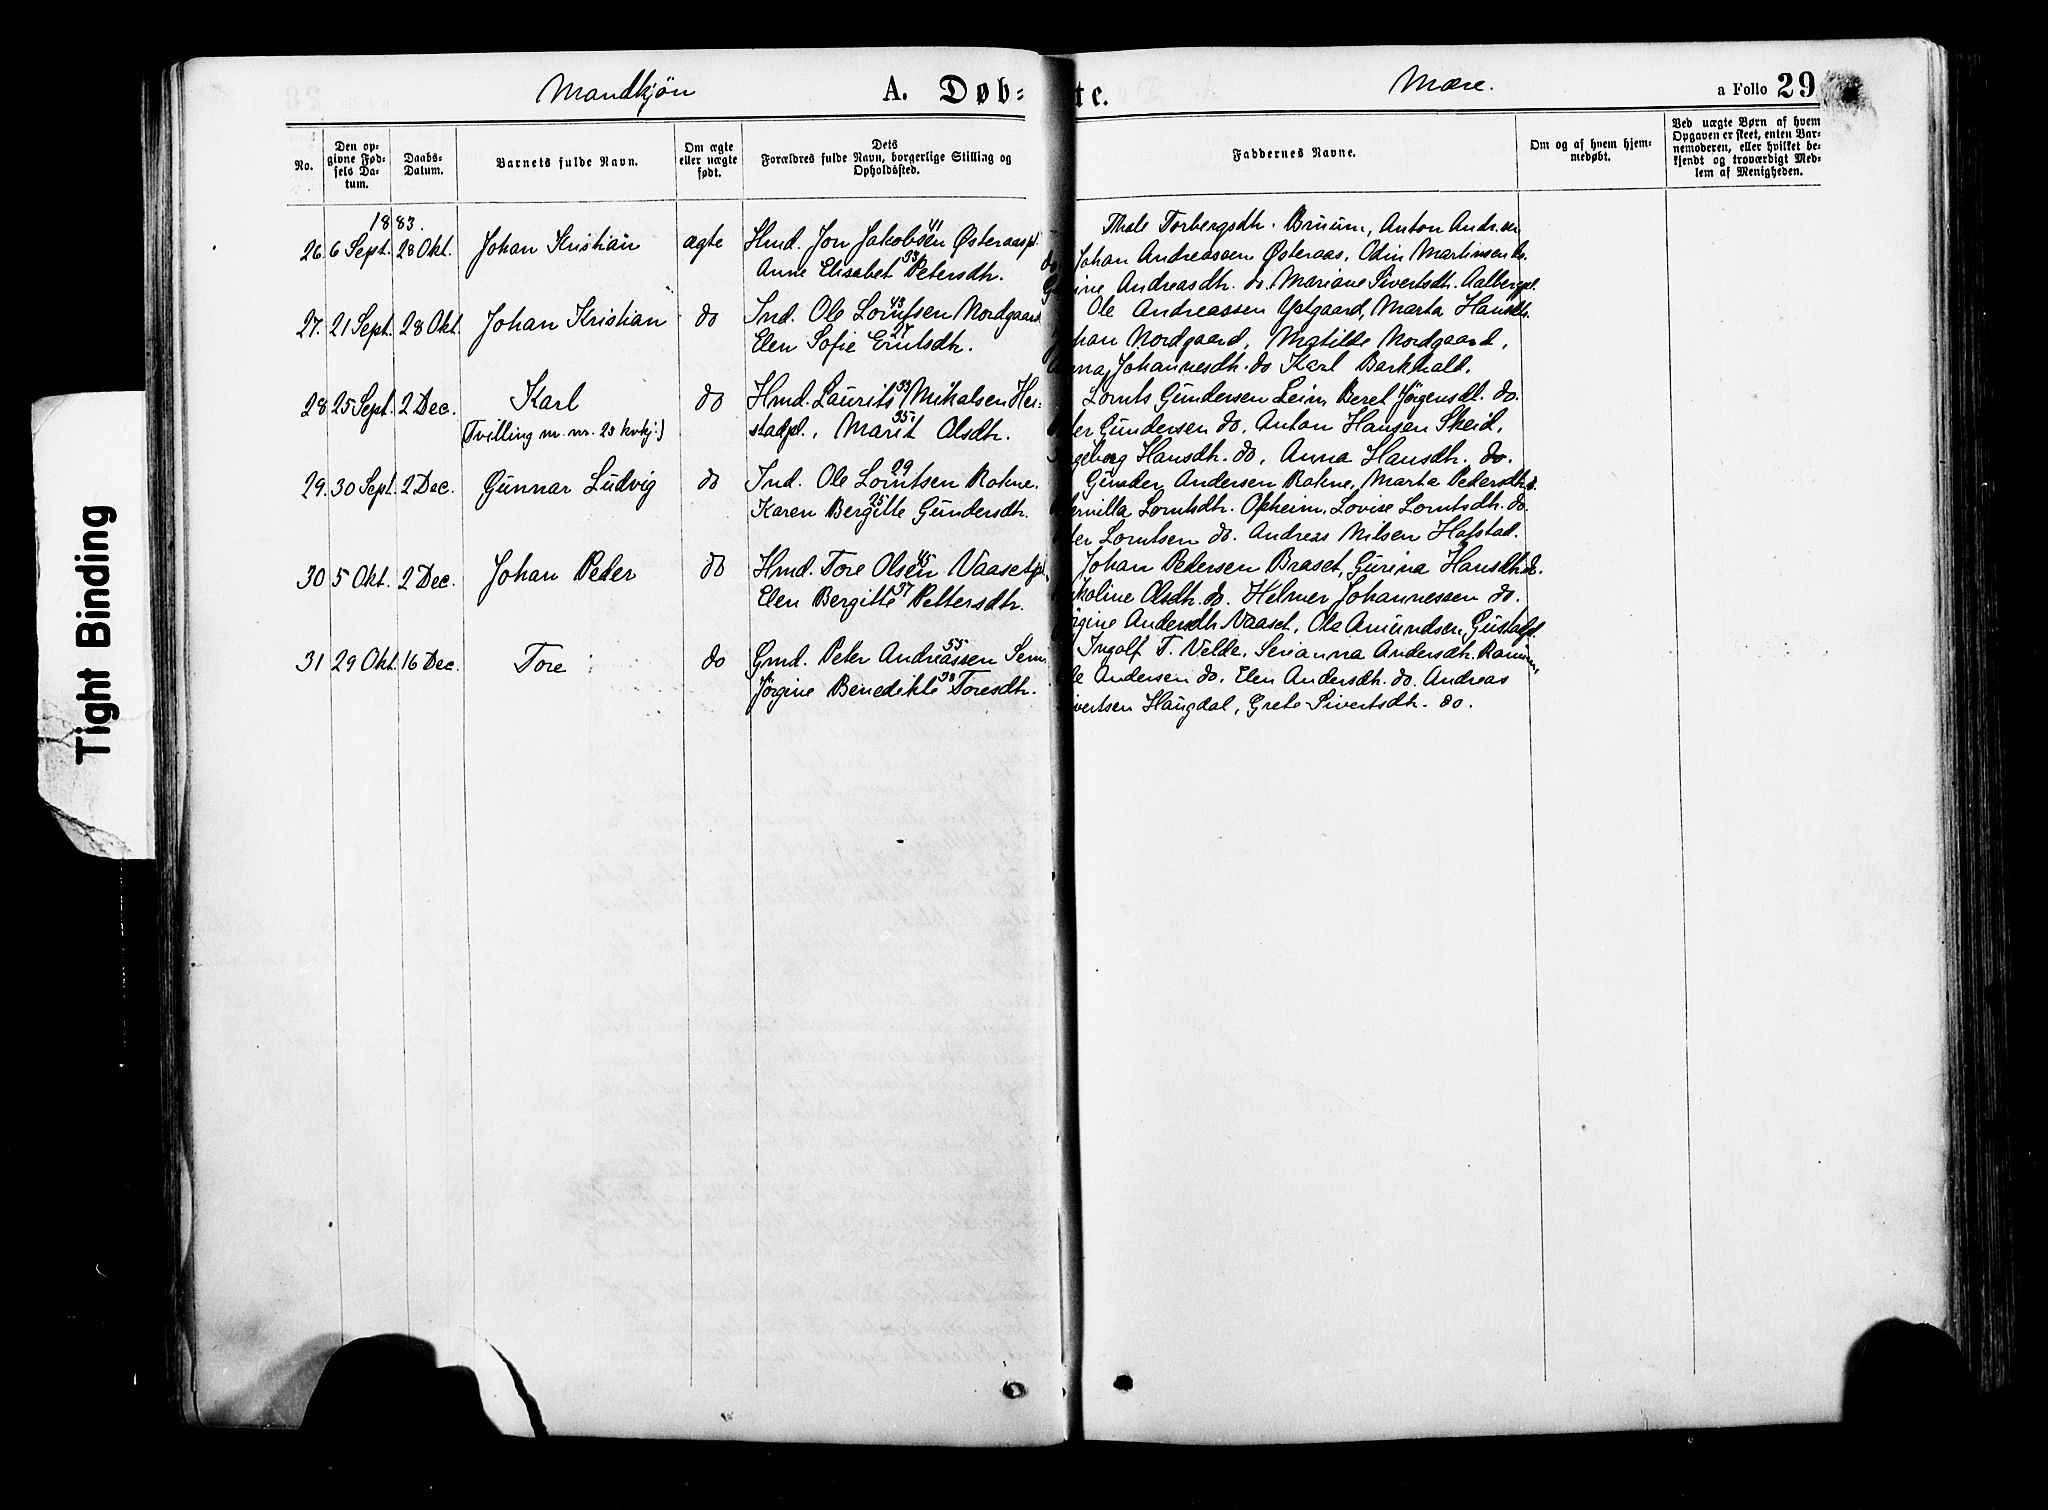 Tight Binding
Mandkjön
A. Døb=
te.
Mære.
a Folio 29
No.
Den op-
givne Fød-
sels Da-
tum.
Daabs-
Datum.
Barnets fulde Navn.
Om ægte
eller uægte
født.
Dets
Forældres fulde Navn, borgerlige Stilling og
Opholdssted.
Faddernes Navne.
Om og af hvem hjem-
medøbt.
Ved uægte Børn af hvem
Opgaven er skeet, enten Bar-
nemoderen, eller hvilket be-
kjendt og troværdigt Med-
lem af Menigheden.
1883.
26. 6 Sept. 28 Okt. Johan Kristian ægte Hmd. Jon Jakobsen 41 Østeraaspl.
Anne Elisabet 33 Petersdtr.
Thale Torbergsdtr. Bruum, Anton Andrsen
do. Johan Andreassen Østeraas, Odin Martinsen do.
Andreasdtr. do. Mariane Sivertsdtr. Aalbergpl.
27. 21 Sept. 28 Okt. Johan Kristian do Ind. Ole Lorntsen 43 Nordgaard
Elen Sofie Erntsdtr.
Ole Andreassen Ystgaard, Marta Hansdtr.
Johan Nordgaard, Matilde Nordgaard,
Anna Johannesdtr. do Karl Barkhald.
28 25 Sept. 2 Dec. Karl do Hmd. Laurits 33 Mikalsen Hei-
(Tvilling m. nr. 23 kvkj:) stadpl., Marit 35 Olsdtr.
Lornts Gundersen Lein, Beret Jörgensdt. do.
Peter Gundersen do, Anton Hansen Skeid,
Ingeborg Hansdtr. do, Anna Hansdtr. do.
29. 30 Sept. 2 Dec. Gunnar Ludvig do Ind. Ole Lorntsen 29 Rokne.
Karen Bergitte 25 Gundersdtr.
Gunder Andersen Rokne, Marta Petersdtr. do.
Lorntsdtr. Opheim, Lovise Lorntsdtr. do.
Peter Lorntsen do. Andreas Nilsen Hafstad.
30 5 Okt. 2 Dec. Johan Peder do Hmd. Tore Olsen 45 Vaasetpl.
Elen Bergitte 37 Pettersdtr.
Johan Pedersen Braset, Gurina Hansdtr. do.
Nikoline Olsdtr. do. Helmer Johannessen do.
Jörgine Andersdtr. Vaaset, Ole Amundsen Gustadpl.
31 29 Okt. 16 Dec. Tore do Gmd. Peter Andreassen 55 Sem.
Jørgine Benedikte 38 Toresdtr.
Ingolf T. Velde, Serianna Andersdtr.
Ole Andersen do, Elen Andersdtr. do. Andreas
Sivertsen Haugdal, Grete Sivertsdtr. do.